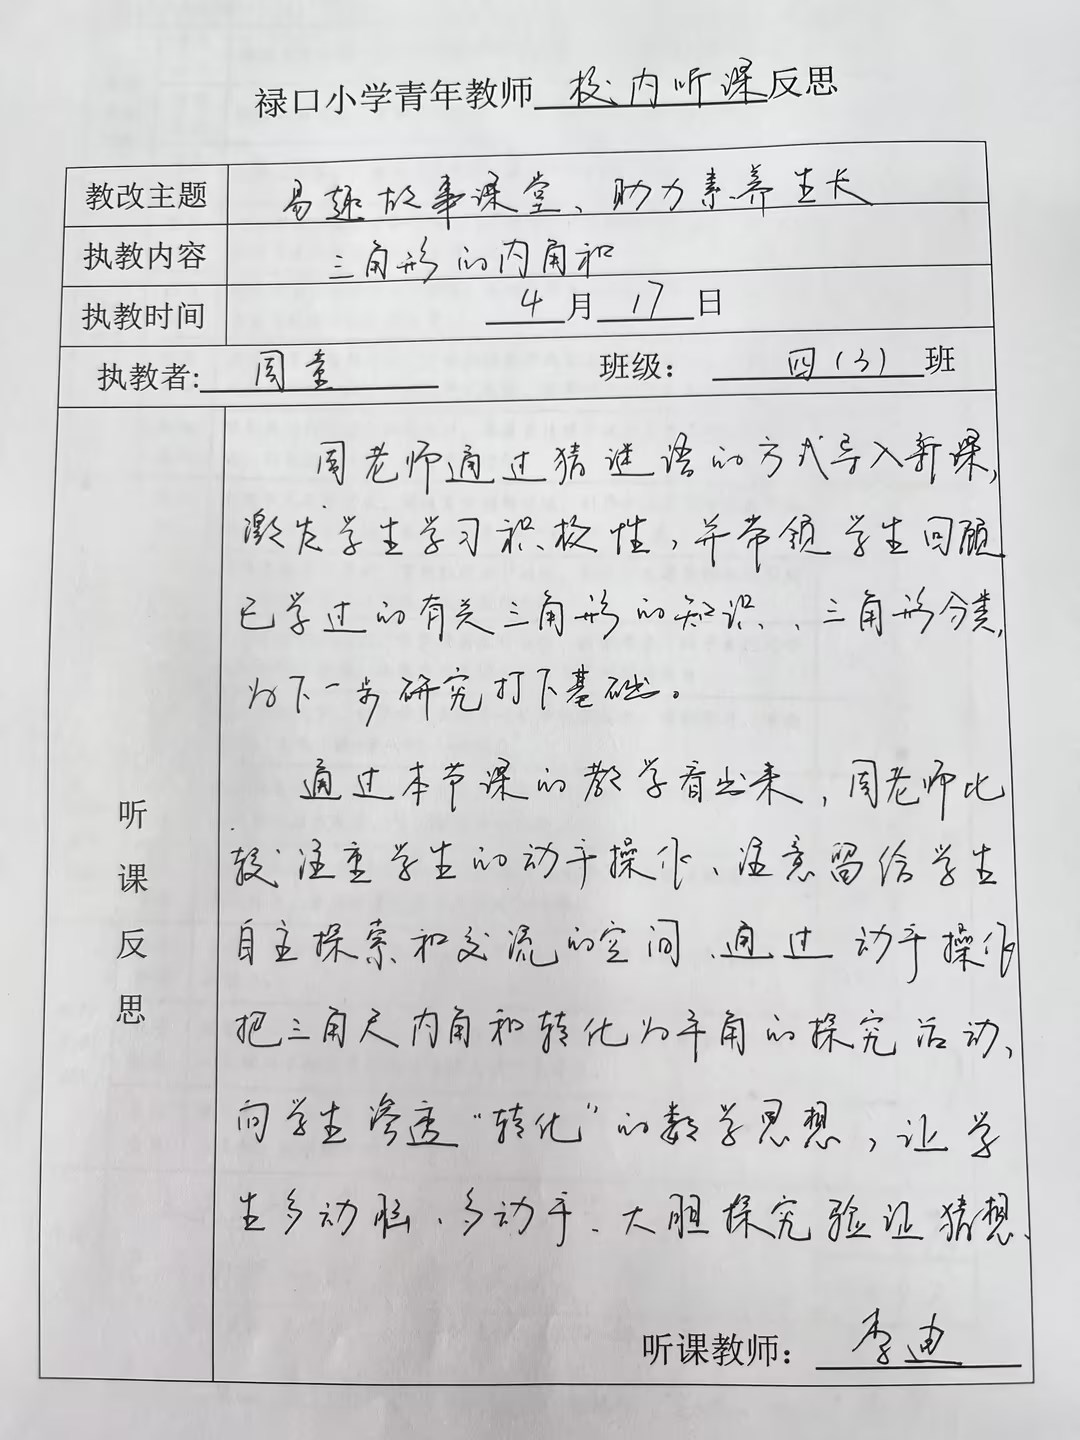 禄口小学青年教师 校内听课 反思
教改主题 易趣故事课堂、助力素养生长
执教内容 三角形的内角和
执教时间 4月17日
执教者:周童 班级：四(3)班
听课反思
周老师通过猜谜语的方式导入新课,
激发学生学习积极性,并带领学生回顾
已学过的有关三角形的知识、三角形分类,
为下一步研究打下基础。
通过本节课的教学看出来,周老师比
较注重学生的动手操作、注意留给学生
自主探索和交流的空间、通过动手操作
把三角尺内角和转化为平角的探究活动、
向学生渗透“转化”的数学思想,让学
生多动脑、多动手、大胆探究验证猜想、
听课教师：李迪